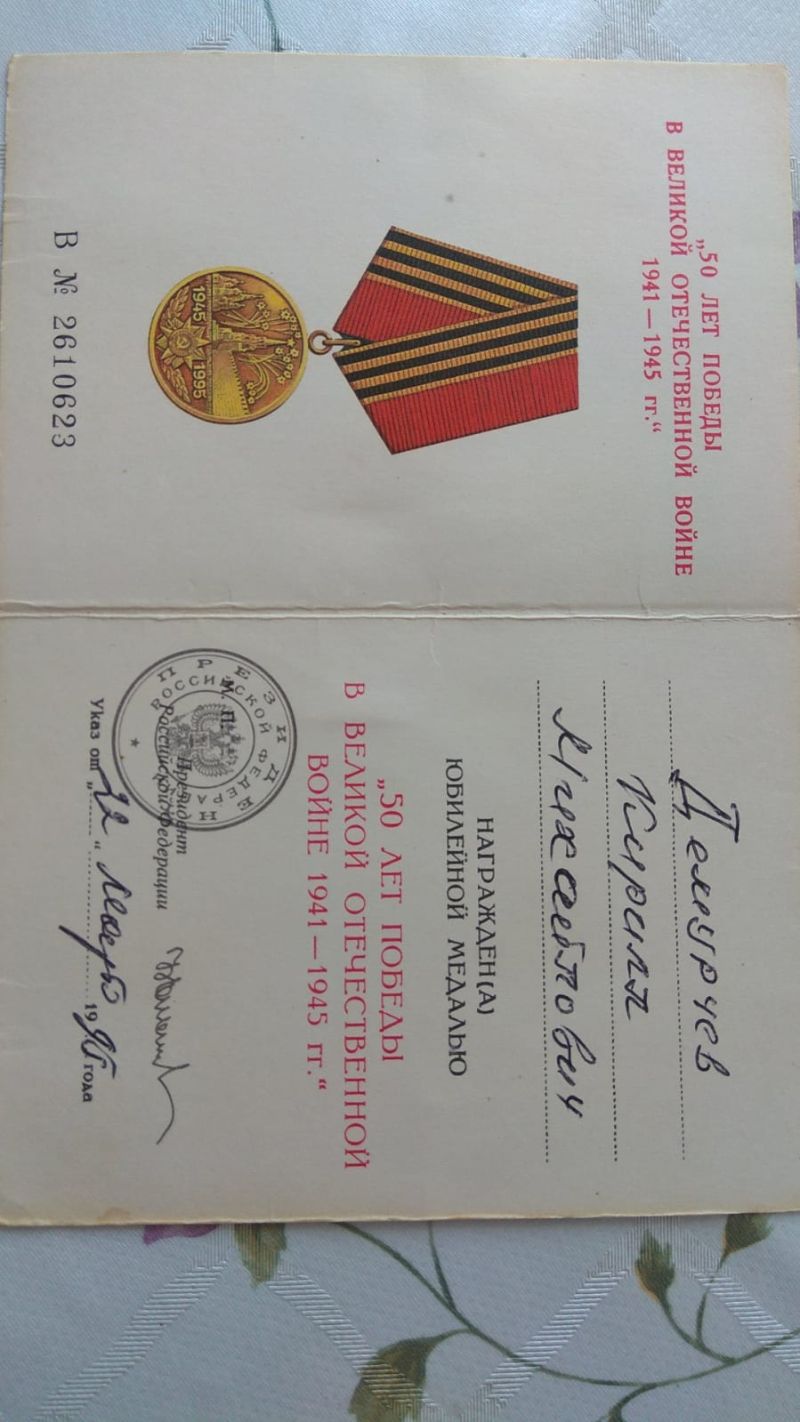 „50 ЛЕТ ПОБЕДЫ
В ВЕЛИКОЙ ОТЕЧЕСТВЕННОЙ ВОЙНЕ
1941—1945 гг.“
1945 1995
В № 2610623
Демурчев
Кирилл
Михайлович
НАГРАЖДЕН(А)
ЮБИЛЕЙНОЙ МЕДАЛЬЮ
„50 ЛЕТ ПОБЕДЫ
В ВЕЛИКОЙ ОТЕЧЕСТВЕННОЙ
ВОЙНЕ 1941—1945 гг.“
М. П.
Президент
Российской Федерации
Указ от „22“ марта 1995 года